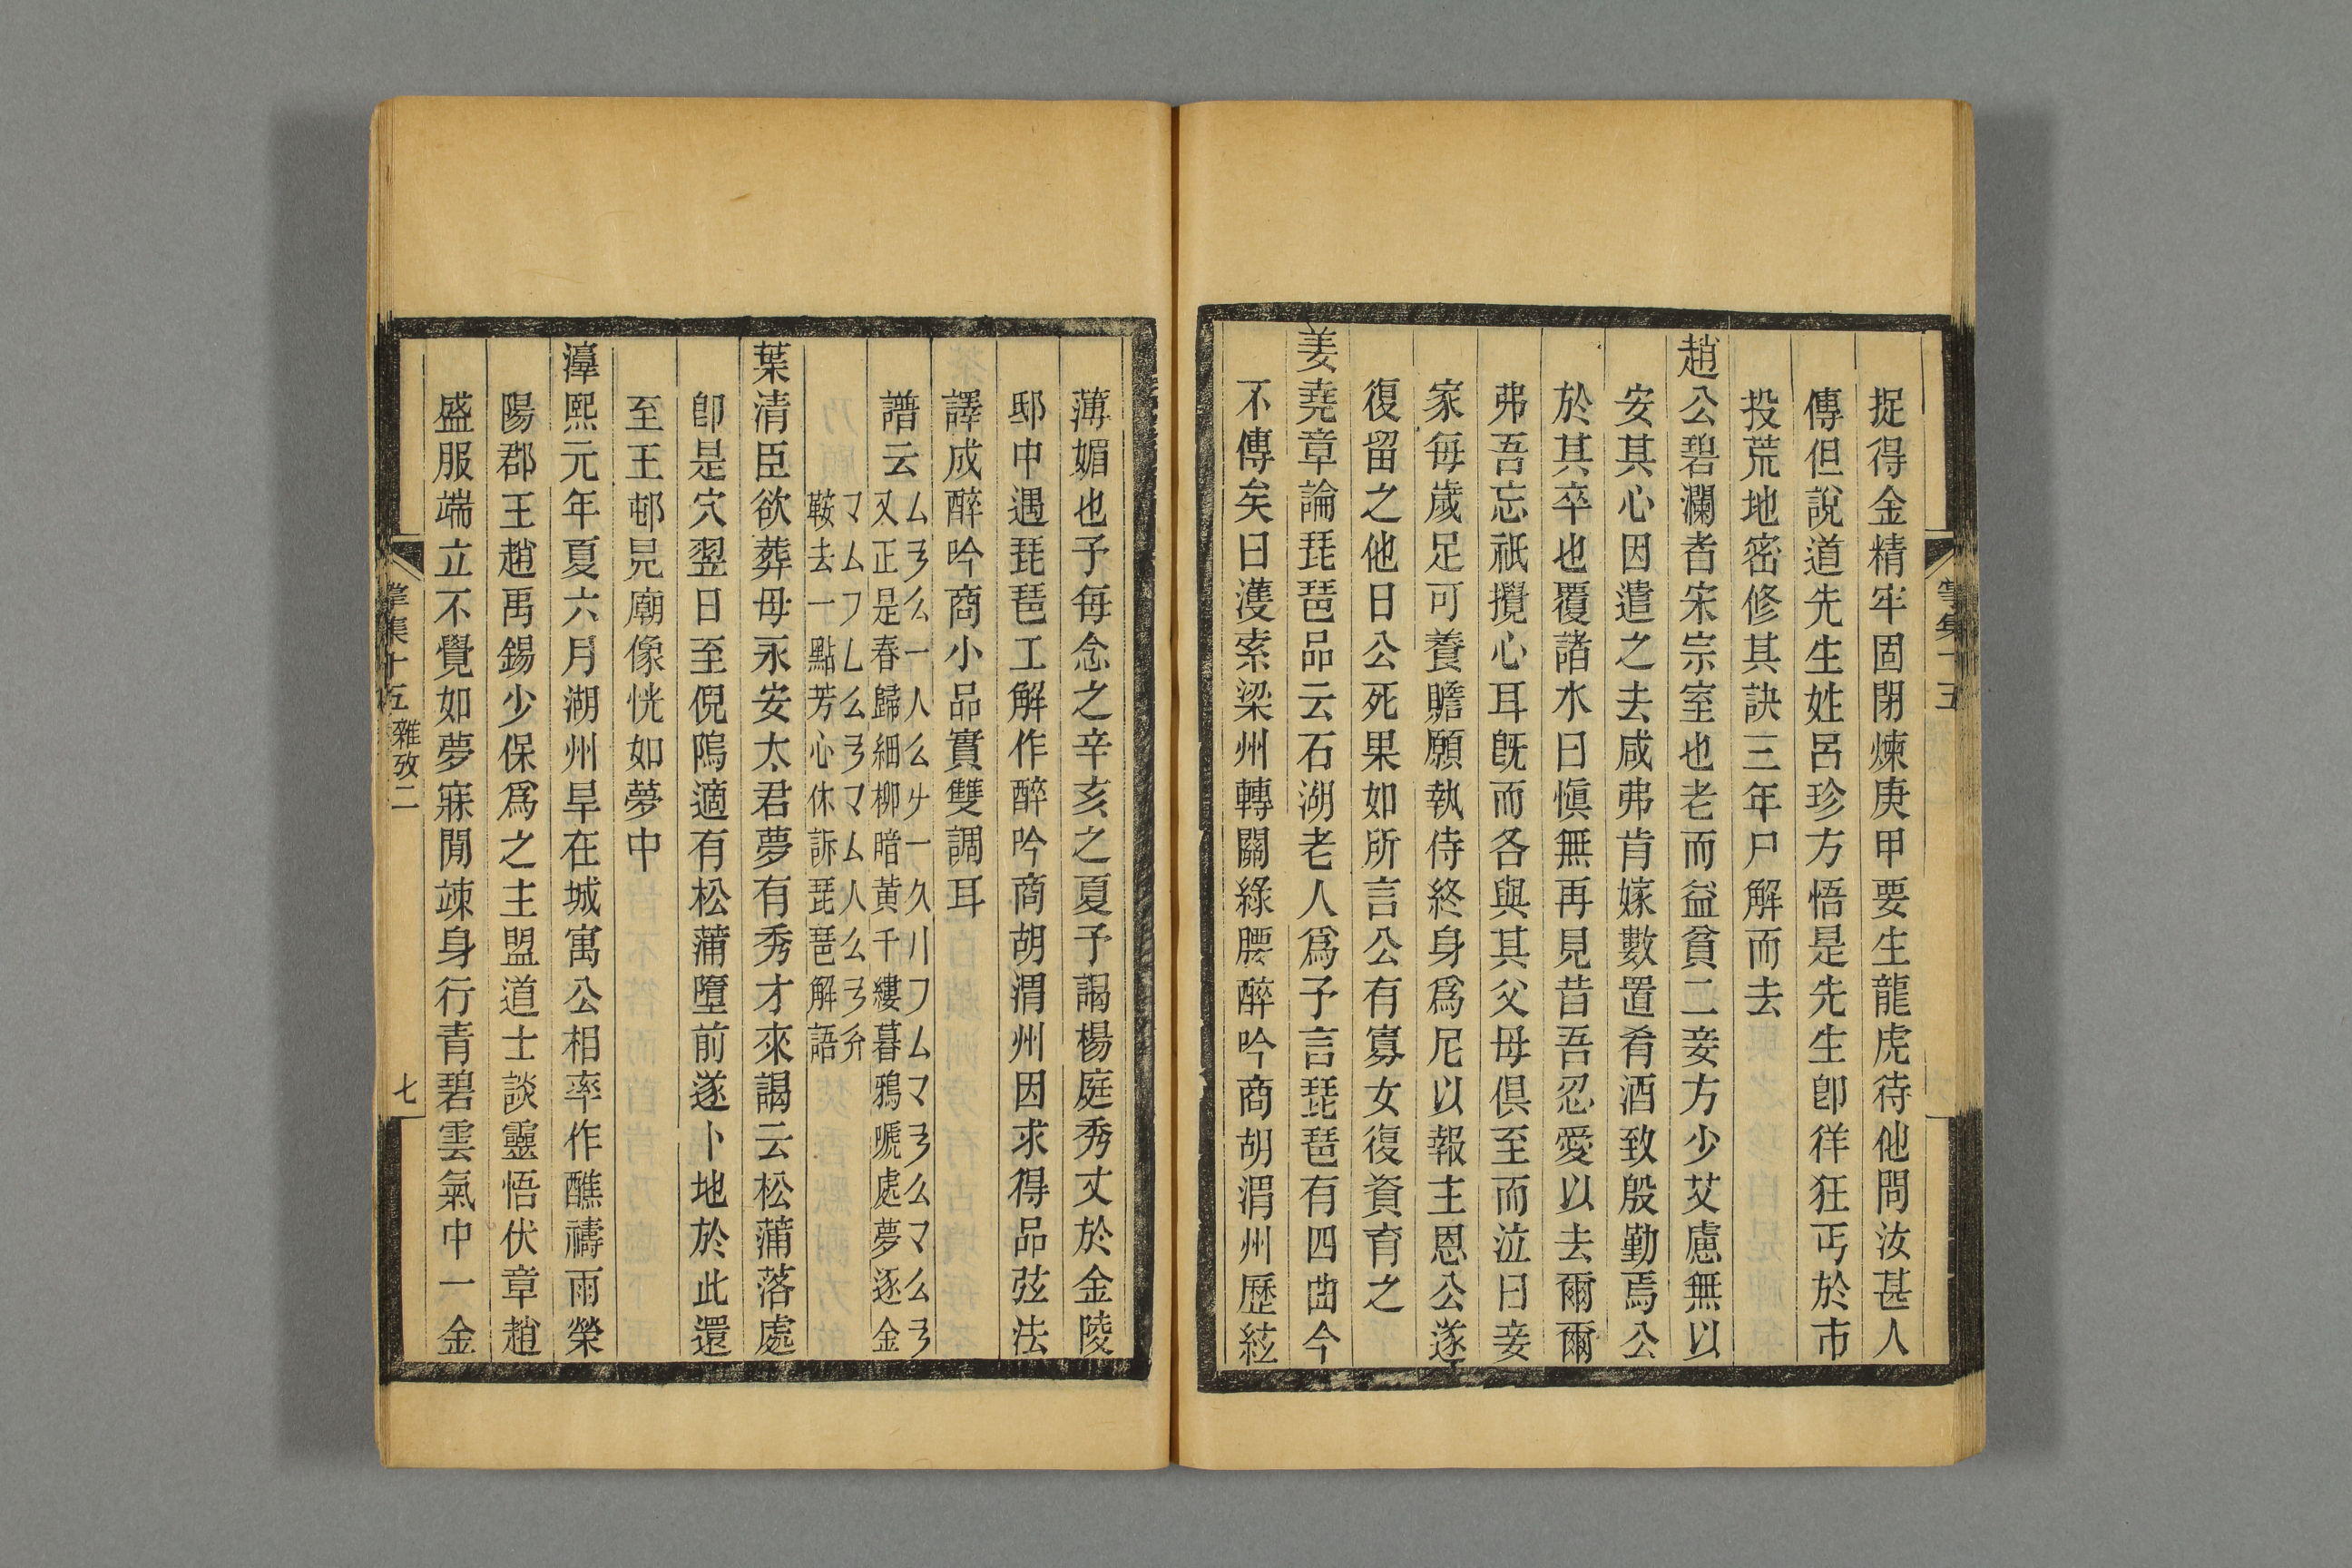 捉得金精牢固閉煉庚甲要生龍虎待他問汝甚人
傳但說道先生姓呂珍方悟是先生卽徉狂丐於市
投荒地密修其訣三年尸解而去
趙公碧瀾者宋宗室也老而益貧二妾方少艾慮無以
安其心因遣之去咸弗肯嫁數置肴酒致殷勤焉公
於其卒也覆諸水曰愼無再見昔吾忍愛以去爾爾
弗吾忘祇攪心耳旣而各與其父母俱至而泣曰妾
家每歲足可養贍願執侍終身爲尼以報主恩公遂
復留之他日公死果如所言公有寡女復資育之
姜堯章論琵琶品云石湖老人爲予言琵琶有四曲今
不傳矣曰濩索梁州轉關綠腰醉吟商胡渭州歷絃
薄媚也予每念之辛亥之夏予謁楊庭秀丈於金陵
邸中遇琵琶工解作醉吟商胡渭州因求得品弦法
譯成醉吟商小品實雙調耳
譜云
又正是春歸細柳暗黃千縷暮鴉嗁處夢逐金
鞍去一點芳心休訴琵琶解語
葉清臣欲葬母永安太君夢有秀才來謁云松蒲落處
卽是穴翌日至倪隖適有松蒲墮前遂卜地於此還
至王邨見廟像恍如夢中
淳熙元年夏六月湖州旱在城寓公相率作醮禱雨榮
陽郡王趙禹錫少保爲之主盟道士談靈悟伏章趙
盛服端立不覺如夢寐閒竦身行青碧雲氣中一金
集十五 雜攷二
七